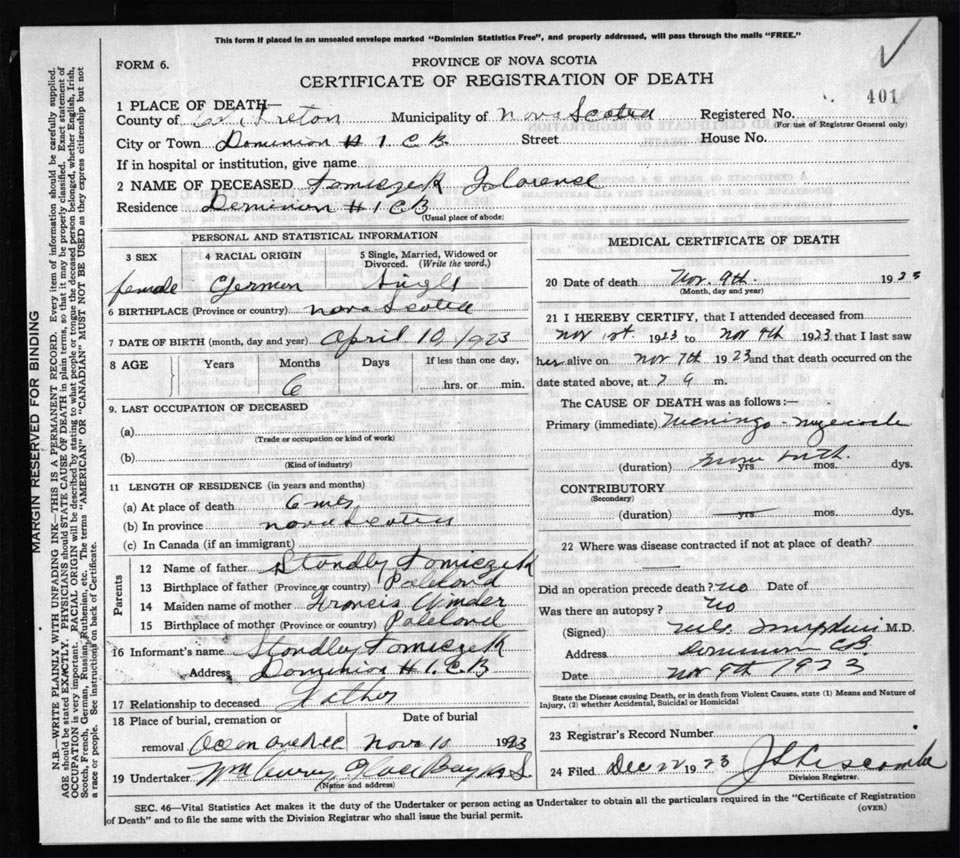 This form if placed in an unsealed envelope marked "Dominion Statistics Free", and properly addressed, will pass through the mails "FREE."
FORM 6.
PROVINCE OF NOVA SCOTIA
CERTIFICATE OF REGISTRATION OF DEATH
401
1 PLACE OF DEATH—
County of Breton Municipality of Nova Scotia Registered No.
(For use of Registrar General only)
City or Town Dominion # 1 C.B. Street House No.
If in hospital or institution, give name
2 NAME OF DECEASED Tomiczek Florence
Residence Dominion # 1 C.B
(Usual place of abode)
PERSONAL AND STATISTICAL INFORMATION
3 SEX 4 RACIAL ORIGIN 5 Single, Married, Widowed or Divorced. (Write the word.)
female German Single
6 BIRTHPLACE (Province or country) Nova Scotia
7 DATE OF BIRTH (month, day and year) April 10, 1923
8 AGE Years Months Days If less than one day,
6 hrs. or min.
9. LAST OCCUPATION OF DECEASED
(a)
(Trade or occupation or kind of work)
(b)
(Kind of industry)
11 LENGTH OF RESIDENCE (in years and months)
(a) At place of death 6 mts
(b) In province Nova Scotia
(c) In Canada (if an immigrant)
Parents
12 Name of father Standly Tomiczek
13 Birthplace of father (Province or country) Poleland
14 Maiden name of mother Francis
15 Birthplace of mother (Province or country) Poleland
16 Informant's name Standly Tomiczek
Address Dominion # 1. C.B
17 Relationship to deceased Father
18 Place of burial, cremation or Date of burial
removal Nov 10 1923
19 Undertaker Wm Glace Bay N.S
(Name and address)
MEDICAL CERTIFICATE OF DEATH
20 Date of death Nov. 9th 1923
(Month, day and year)
21 I HEREBY CERTIFY, that I attended deceased from
Nov 1st 1923 to Nov 9th 1923 that I last saw
her alive on Nov 7th 1923 and that death occurred on the
date stated above, at 7 a m.
The CAUSE OF DEATH was as follows:—
Primary (immediate) Meningo-myelocele
(duration) from birth yrs. mos. dys.
CONTRIBUTORY
(Secondary)
(duration) yrs. mos. dys.
22 Where was disease contracted if not at place of death?
Did an operation precede death? no Date of
Was there an autopsy? no
(Signed) M.D.
Address Dominion CB
Date Nov 9th 1923
State the Disease causing Death, or in death from Violent Causes, state (1) Means and Nature of
Injury, (2) whether Accidental, Suicidal or Homicidal
23 Registrar's Record Number
24 Filed Dec 22 1923
Division Registrar.
SEC. 46—Vital Statistics Act makes it the duty of the Undertaker or person acting as Undertaker to obtain all the particulars required in the "Certificate of Registration
of Death" and to file the same with the Division Registrar who shall issue the burial permit.
(OVER)
MARGIN RESERVED FOR BINDING
N.B.—WRITE PLAINLY WITH UNFADING INK—THIS IS A PERMANENT RECORD. Every item of information should be carefully supplied.
AGE should be stated EXACTLY. PHYSICIANS should STATE CAUSE OF DEATH in plain terms, so that it may be properly classified. Exact statement of
OCCUPATION is very important. RACIAL ORIGIN will be described by stating to what people or tongue the deceased person belonged, whether English, Irish,
Scotch, French, German, Russian, Ruthenian, etc. The terms "AMERICAN" OR "CANADIAN" MUST NOT BE USED as they express citizenship but not
a race or people. See instructions on back of Certificate.